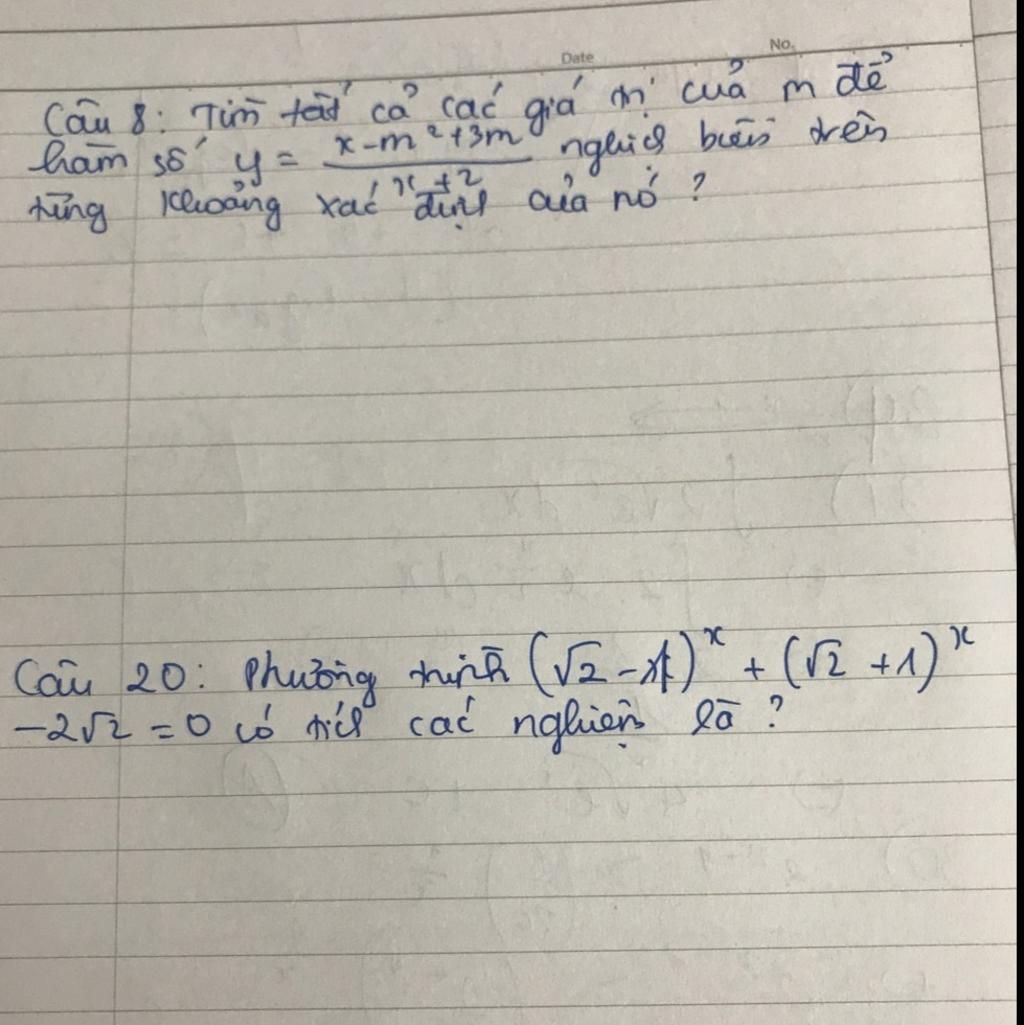 Date No.
Câu 8: Tìm tất cả các giá trị của m để
hàm số y = \frac{x-m²+3m}{x+2} nghịch biến trên
từng khoảng xác định của nó ?
Câu 20: Phương trình (√2 -1)^x + (√2 +1)^x
-2√2 = 0 có tích các nghiệm là ?